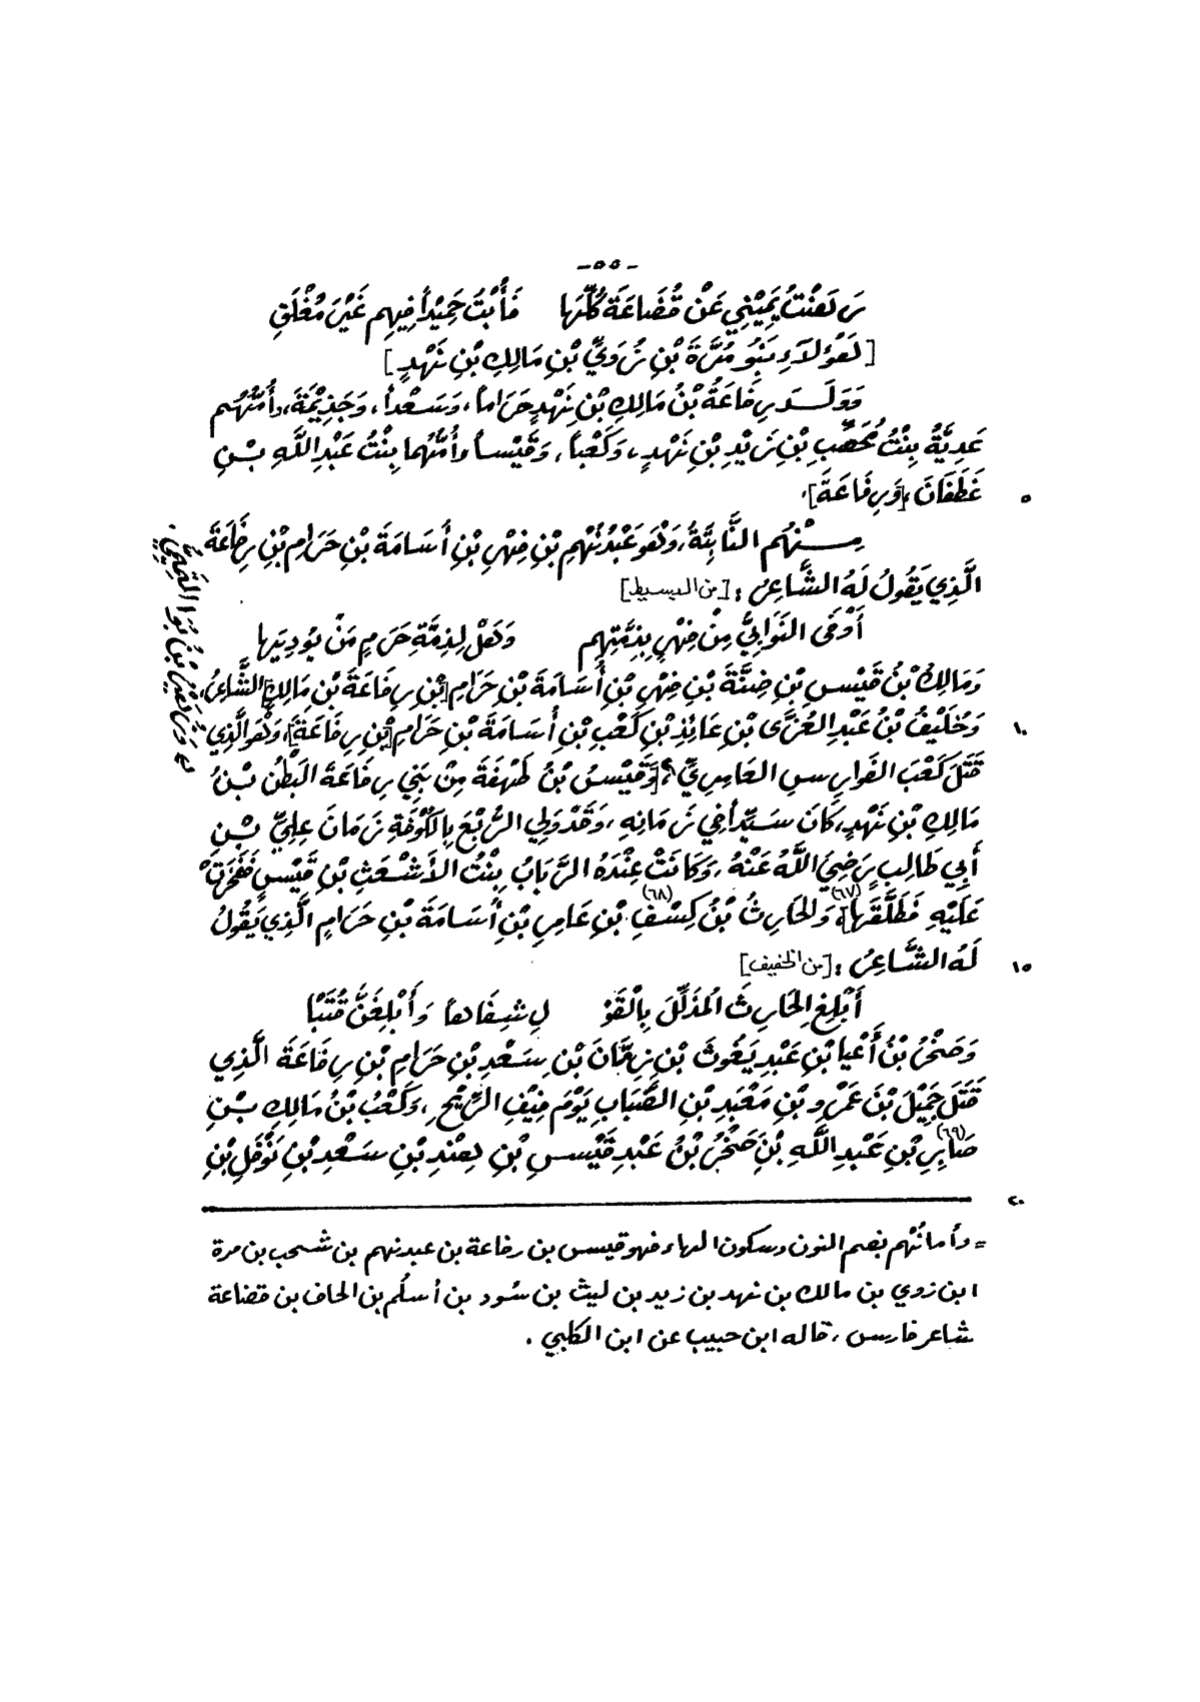 -٥٥-
رَهَنْتُ يَمِيْنِي عَنْ قُضَاعَةَ كُلِّهَا    فَأُبْتُ حَمِيْداً فِيهِم غَيْرَ مُغْلَقِ
[هَؤُلاَءِ بَنُو مُرَّةَ بْنِ زُوَيِّ بْنِ مَالِكِ بْنِ نَهْدٍ]
وَوَلَـدَ رِفَاعَةُ بْنُ مَالِكِ بْنِ نَهْدٍ حَرَاماً، وَسَعْداً، وَجَذِيْمَةَ، وأُمُّهُم
عَدِيَّةُ بِنْتُ مُحَصِّبِ بْنِ زَيْدِ بْنِ نَهْدٍ، وَكَعْباً، وَقَيْساً وأُمُّهُما بِنْتُ عَبْدِ اللَّهِ بْنِ
غَطَفَانَ، [وَرِفَاعَةَ].
٥
مِـنْهُم النَّابِيَّةُ، وَهْوَ عَبْدُ نُهْمِ بْنِ فِهْرِ بْنِ أُسَامَةَ بْنِ حَرَامِ بْنِ رِفَاعَةَ
الَّذِي يَقُولُ لَهُ الشَّاعِرُ: [من البسيط]
أَوْفَى النَوَابِيُّ مِنْ فِهْرٍ بِذِمَّتِهِم    وَهَلْ لِذِمَّةِ حَرَمٍ مَنْ يُودِيَها
وَمَالِكُ بْنُ قَيْسِ بْنِ ضِنَّةَ بْنِ فِهْرِ بْنِ أُسَامَةَ بْنِ حَرَامِ [بْنِ رِفَاعَةَ بْنِ مَالِكٍ] الشَّاعِرُ،
وَخُلَيْفُ بْنُ عَبْدِ العُزَّى بْنِ عَائِذِ بْنِ كَعْبِ بْنِ أُسَامَةَ بْنِ حَرَامِ [بْنِ رِفَاعَةَ]، وَهْوَ الَّذِي
١٠
قَتَلَ كَعْبَ الفَوَارِسِ العَامِرِيَّ، [وَقَيْسُ بْنُ طَهْفَةَ مِنْ بَنِي رِفَاعَةَ البَطْنُ بْنُ
مَالِكِ بْنِ نَهْدٍ، كَانَ سَيِّداً فِي زَمَانِهِ، وَقَدْ وَلِي الرُّبْعَ بِالكُوْفَةِ زَمَانَ عِلِيِّ بْنِ
أَبِي طَالِبٍ رَضِيَ اللَّهُ عَنْهُ، وَكَانَتْ عِنْدَهُ الرَّبَابُ بِنْتُ الأَشْعَثِ بْنِ قَيْسٍ فَفَخَرَتْ
عَلَيْهِ فَطَلَّقَهَا] (٦٧) وَالحَارِثُ بْنُ كِسْفِ (٦٨) بْنِ عَامِرِ بْنِ أُسَامَةَ بْنِ حَرَامٍ الَّذِي يَقُولُ
لَهُ الشَّاعِرُ: [من الخفيف]
١٥
أَبْلِغِ الحَارِثَ المُذَلِّلَ بِالْقَوْ    لِ شِفَاهاً وَأَبْلِغَنَّ قُتَبْا
وَصَخْرُ بْنُ أَعْيا بْنِ عَبْدِ يَغُوثَ بْنِ زِمَّانَ بْنِ سَعْدِ بْنِ حَرَامِ بْنِ رِفَاعَةَ الَّذِي
قَتَلَ جَمِيْلَ بْنَ عَمْرِو بْنِ مَعْبَدِ بْنِ الضِّبَابِ يَوْمَ فِيْفِ الرِّيْحِ، وَكَعْبُ بْنُ مَالِكِ بْنِ
صَابِرِ (٦٩) بْنِ عَبْدِ اللَّهِ بْنِ صَخْرُ بْنُ عَبْدِ قَيْسِ بْنِ هِنْدِ بْنِ سَعْدِ بْنِ نَوْفَلِ بْنِ
٢٠
= وأما نُهْم بضم النون وسكون الهاء فهو قيس بن رفاعة بن عبدنهم بن شحب بن مرة
ابن زوي بن مالك بن نهد بن زيد بن ليث بن سُود بن أسلُم بن الحاف بن قضاعة
شاعر فارس، قاله ابن حبيب عن ابن الكلبي.